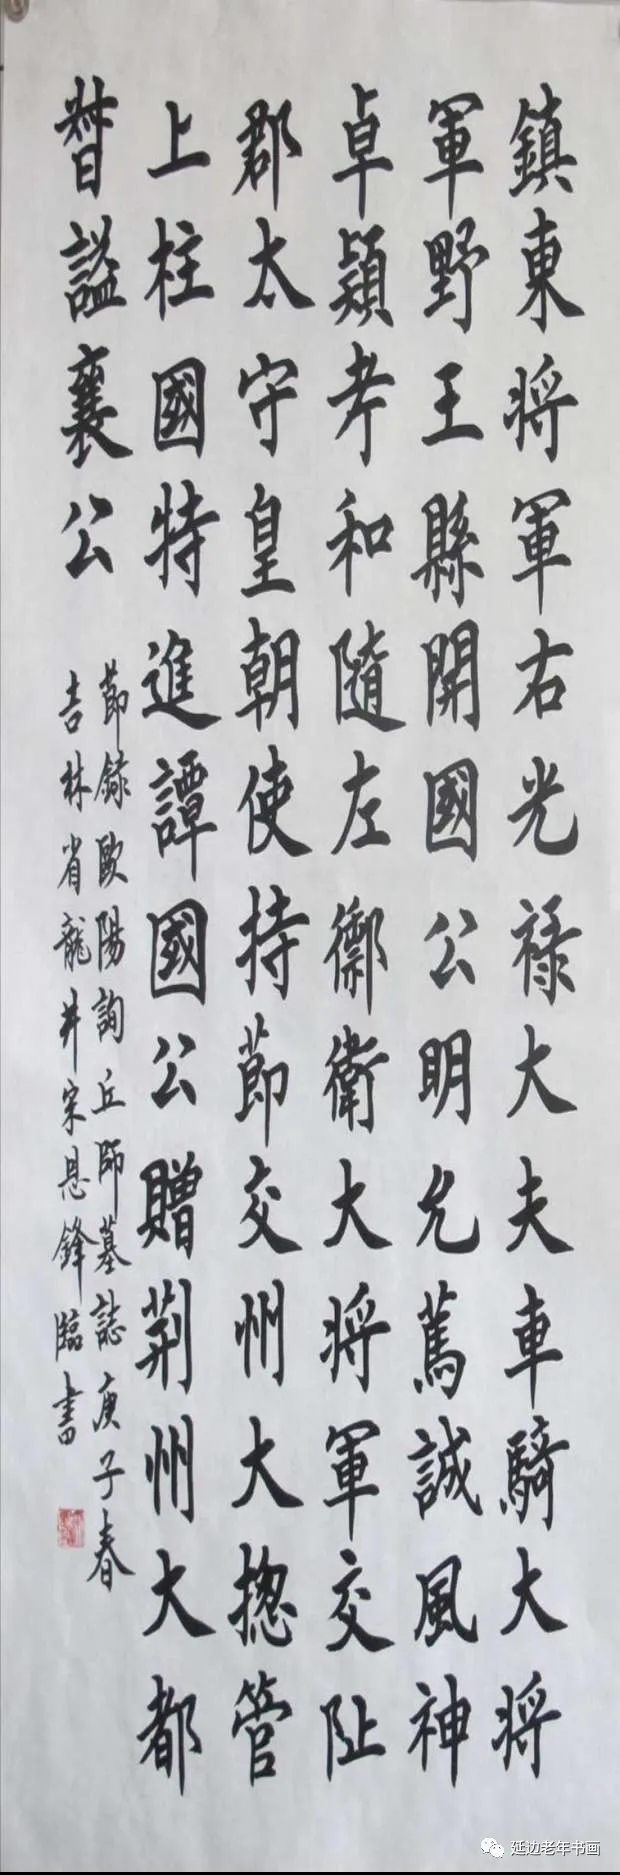 鎮東将軍右光祿大夫車騎大将
軍野王縣開國公明允篤誠風神
卓穎考和隨左禦衛大将軍交阯
郡太守皇朝使持節交州大揔管
上柱國特進譚國公贈荆州大都
督謚襄公
節録歐陽詢丘師墓誌庚子春
吉林省龍井宋恩鋒臨書
延边老年书画